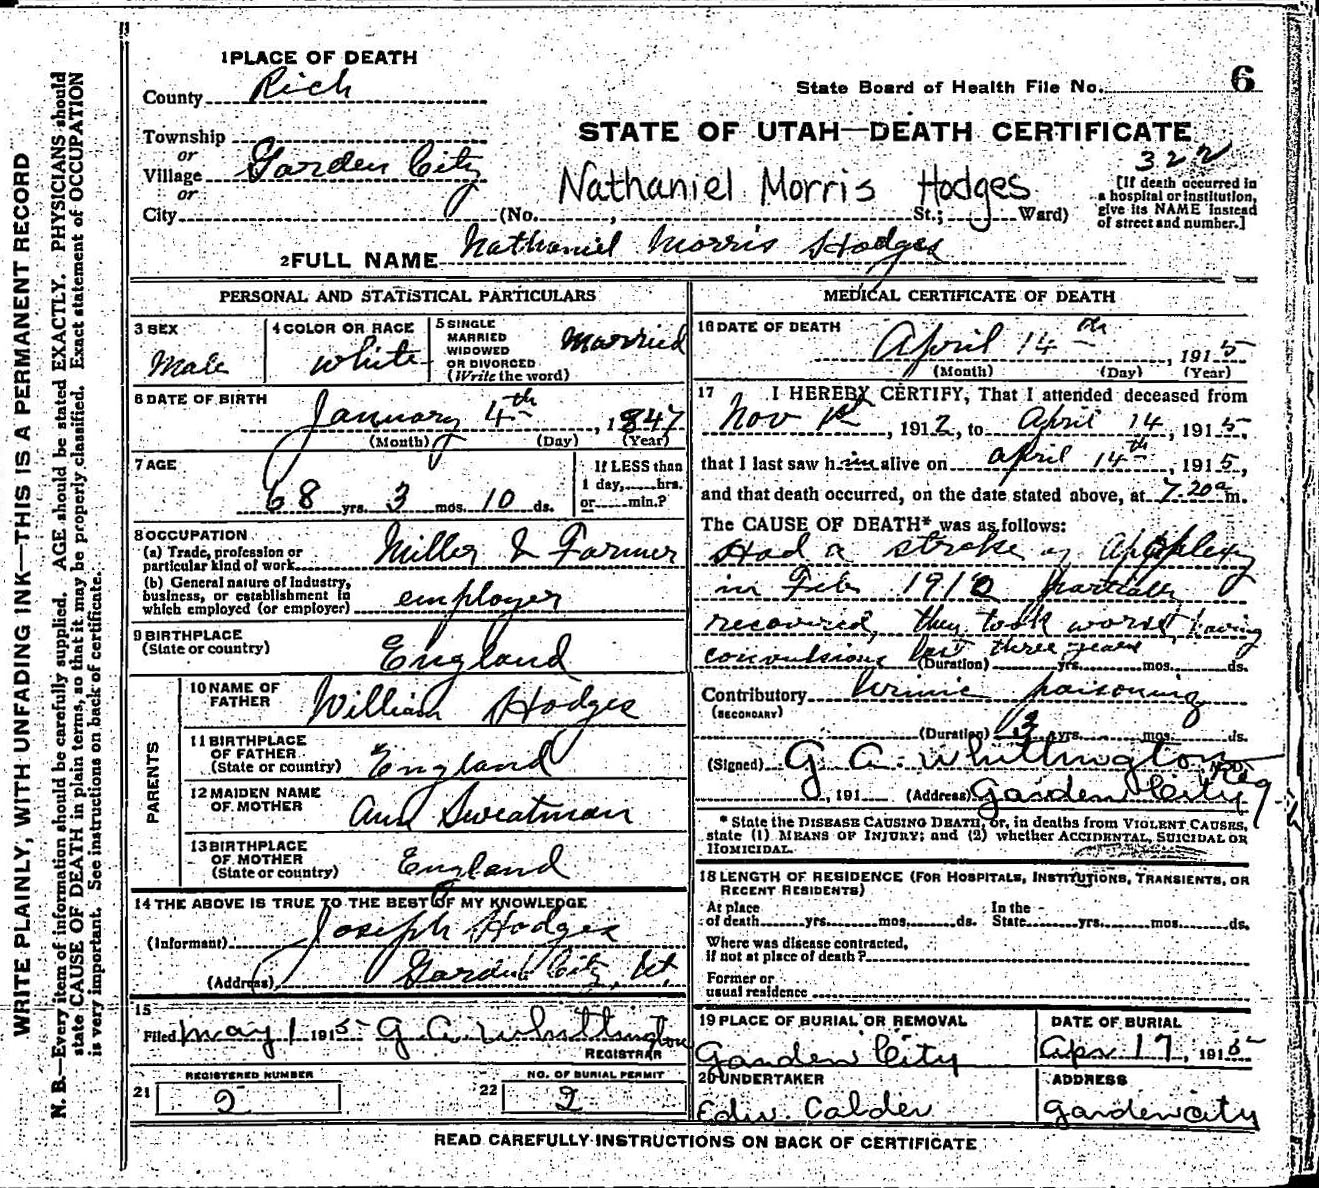 WRITE PLAINLY, WITH UNFADING INK—THIS IS A PERMANENT RECORD
N. B.—Every item of information should be carefully supplied. AGE should be stated EXACTLY. PHYSICIANS should
state CAUSE OF DEATH in plain terms, so that it may be properly classified. Exact statement of OCCUPATION
is very important. See instructions on back of certificate.
1 PLACE OF DEATH
County Rich
State Board of Health File No. 6
Township
or
Village Garden City
or
City
STATE OF UTAH—DEATH CERTIFICATE
322
Nathaniel Morris Hodges
(No. , St.; Ward)
[If death occurred in
a hospital or institution,
give its NAME instead
of street and number.]
2 FULL NAME Nathaniel Morris Hodges
PERSONAL AND STATISTICAL PARTICULARS
3 SEX
Male
4 COLOR OR RACE
White
5 SINGLE
MARRIED
WIDOWED
OR DIVORCED
(Write the word)
Married
6 DATE OF BIRTH
January 4th, 1847
(Month) (Day) (Year)
7 AGE
68 yrs. 3 mos. 10 ds.
If LESS than
1 day, hrs.
or min.?
8 OCCUPATION
(a) Trade, profession or
particular kind of work Miller & Farmer
(b) General nature of industry,
business, or establishment in
which employed (or employer) employer
9 BIRTHPLACE
(State or country) England
PARENTS
10 NAME OF
FATHER William Hodges
11 BIRTHPLACE
OF FATHER
(State or country) England
12 MAIDEN NAME
OF MOTHER Ann Sweatman
13 BIRTHPLACE
OF MOTHER
(State or country) England
14 THE ABOVE IS TRUE TO THE BEST OF MY KNOWLEDGE
(Informant) Joseph Hodges
(Address) Garden City, Ut.
15
Filed May 1 1915 G. A. Whittington
REGISTRAR
21 REGISTERED NUMBER
2
22 NO. OF BURIAL PERMIT
2
MEDICAL CERTIFICATE OF DEATH
16 DATE OF DEATH
April 14th, 1915
(Month) (Day) (Year)
17 I HEREBY CERTIFY, That I attended deceased from
Nov 1st, 1912, to April 14, 1915,
that I last saw him alive on April 14th, 1915,
and that death occurred, on the date stated above, at 7.20 a m.
The CAUSE OF DEATH* was as follows:
Had a stroke of apoplexy
in Feb 1912 partially
recovered, then took worst, having
convulsions last three years
(Duration) yrs. mos. ds.
Contributory Urinic poisoning
(SECONDARY)
(Duration) 3 yrs. mos. ds.
(Signed) G. A. Whittington Reg
, 191 (Address) Garden City
* State the DISEASE CAUSING DEATH, or, in deaths from VIOLENT CAUSES,
state (1) MEANS OF INJURY; and (2) whether ACCIDENTAL, SUICIDAL OR
HOMICIDAL.
18 LENGTH OF RESIDENCE (FOR HOSPITALS, INSTITUTIONS, TRANSIENTS, OR
RECENT RESIDENTS)
At place
of death yrs. mos. ds.
In the
State yrs. mos. ds.
Where was disease contracted,
if not at place of death?
Former or
usual residence
19 PLACE OF BURIAL OR REMOVAL
Garden City
DATE OF BURIAL
Apr 17, 1915
20 UNDERTAKER
Edw. Calder
ADDRESS
Garden City
READ CAREFULLY INSTRUCTIONS ON BACK OF CERTIFICATE